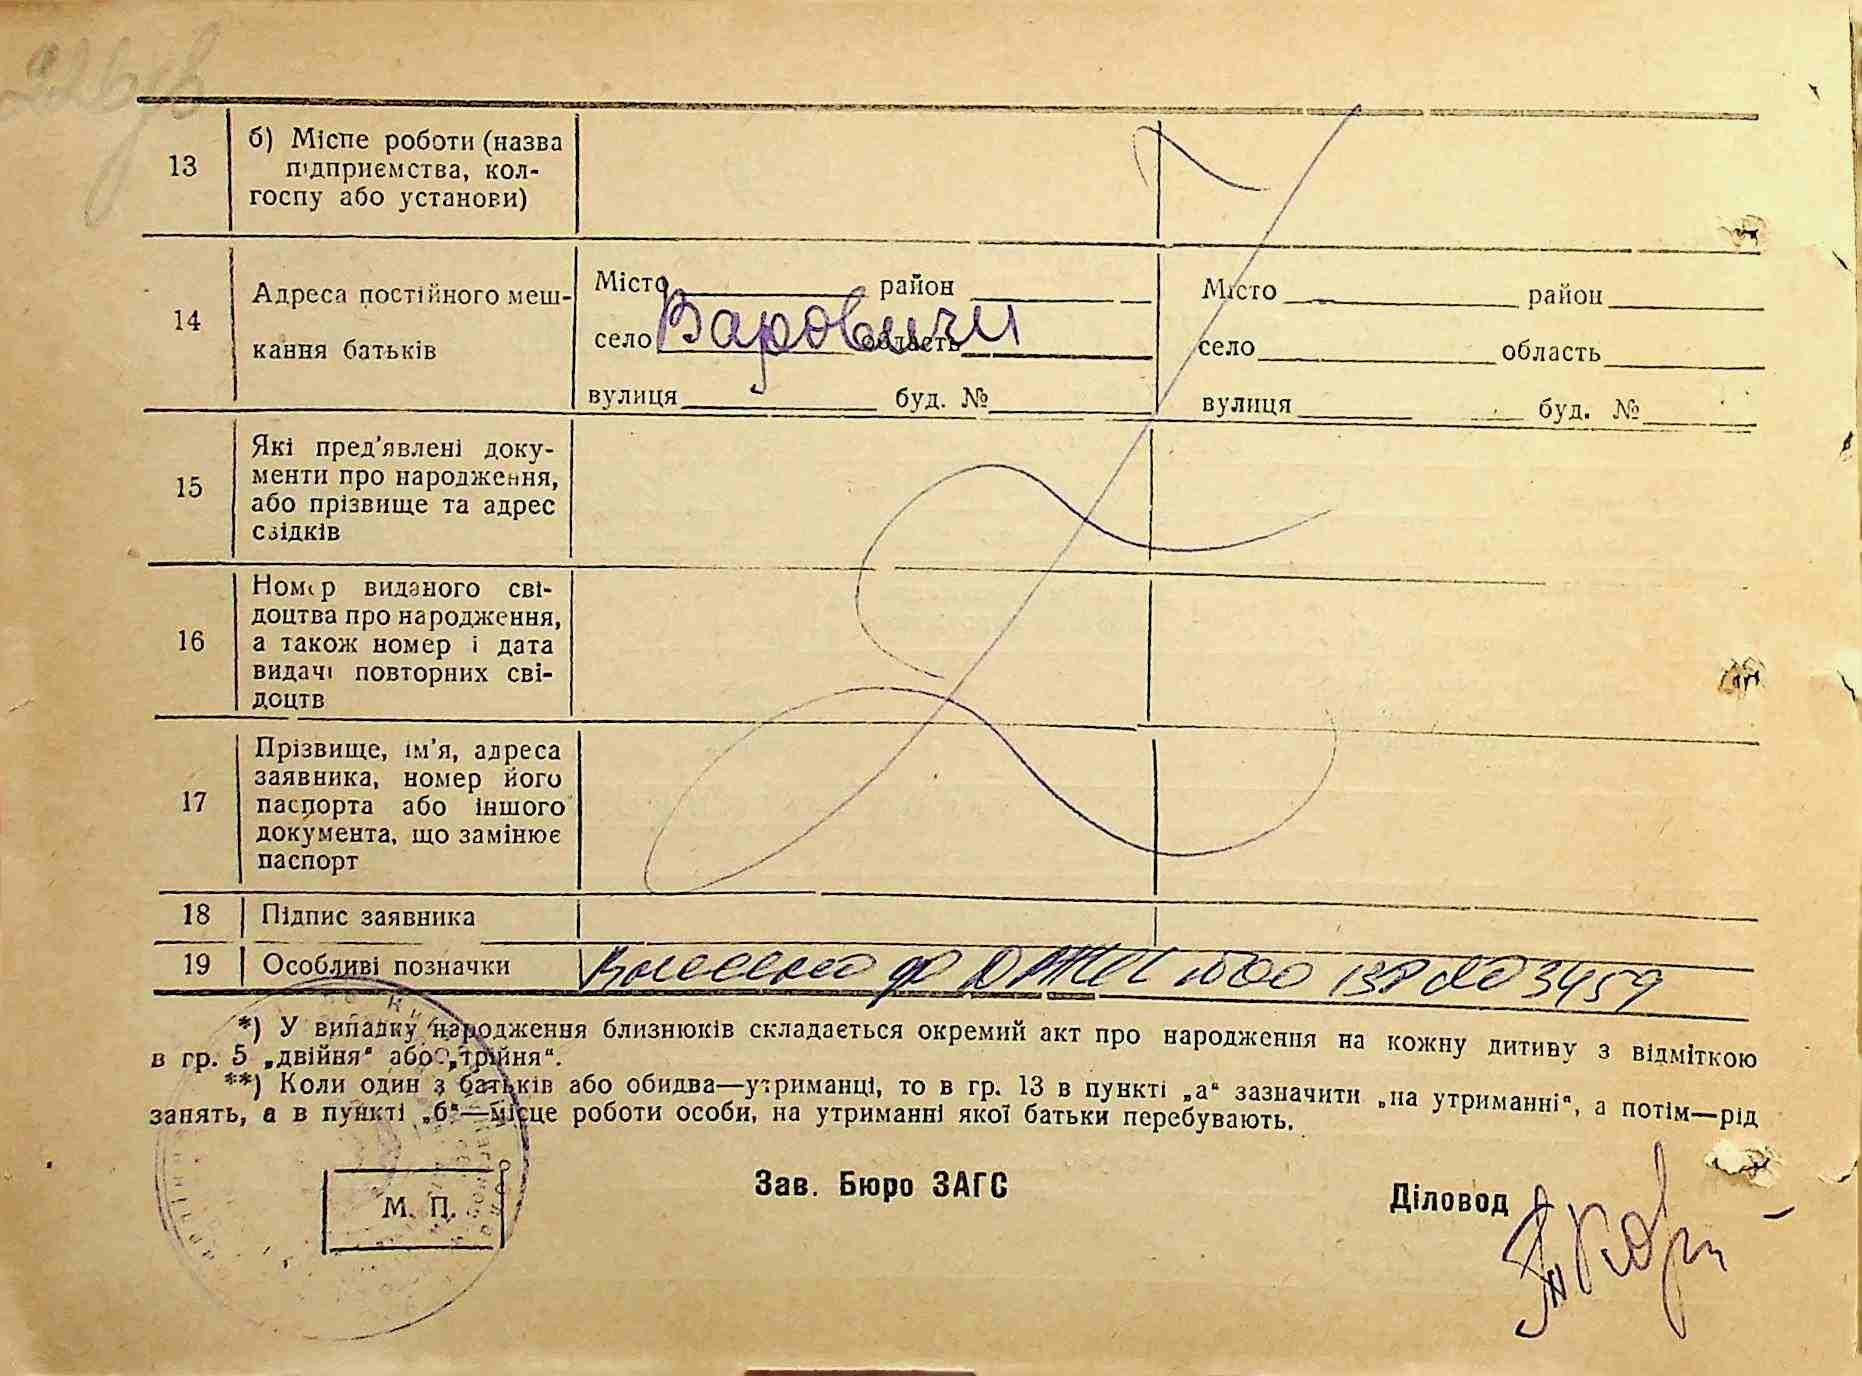 226зв
13
б) Місце роботи (назва
підприємства, кол-
госпу або установи)
14
Адреса постійного меш-
кання батьків
Місто район
село Варовичи область
вулиця буд. №
Місто район
село область
вулиця буд. №
15
Які пред'явлені доку-
менти про народження,
або прізвище та адрес
свідків
16
Номер виданого сві-
доцтва про народження,
а також номер і дата
видачі повторних сві-
доцтв
17
Прізвище, ім'я, адреса
заявника, номер його
паспорта або іншого
документа, що замінює
паспорт
18 Підпис заявника
19 Особливі позначки
Внесено до 3459
*) У випадку народження близнюків складається окремий акт про народження на кожну дитину з відміткою
в гр. 5 „двійня“ або „трійня“.
**) Коли один з батьків або обидва—утриманці, то в гр. 13 в пункті „а“ зазначити „на утриманні“, а потім—рід
занять, а в пункті „б“—місце роботи особи, на утриманні якої батьки перебувають.
М. П.
Зав. Бюро ЗАГС
Діловод